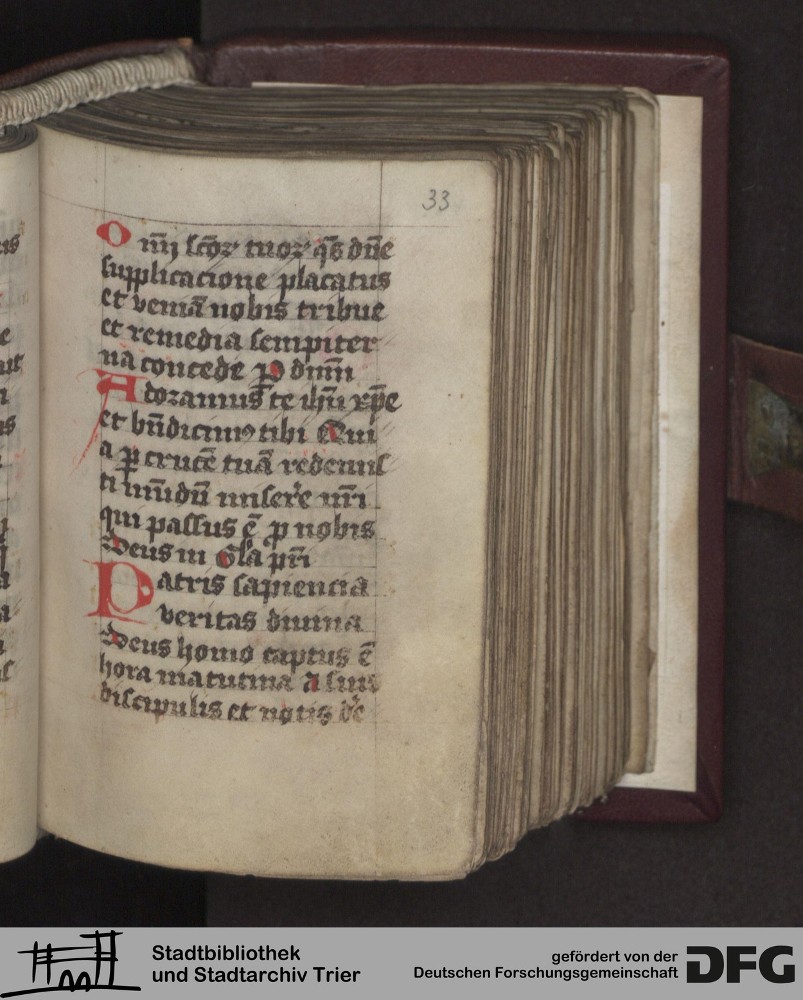 33
Om̄ scōꝝ tuoꝝ q̄s dn̄e
supplicacione placatus
et veniā nobis tribue
et remedia sempiter
na concede P dn̄m
Adoramus te ihū xp̄e
et bn̄dicimꝰ tibi Qui
a ꝑ crucē tuā redemis
ti mūdū miserē nr̄i
qui passus ē ꝓ nobis
Deus in Gl̄a pr̄i
Patris sapiencia
veritas diuina
Deus homo captus ē
hora matutina A suis
discipulis et notis de᷒
Stadtbibliothek
und Stadtarchiv Trier
gefördert von der
Deutschen Forschungsgemeinschaft
DFG